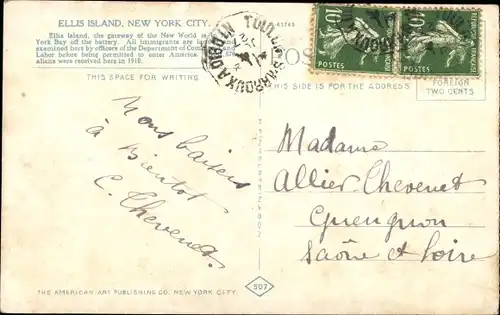 ELLIS ISLAND, NEW YORK CITY.
Ellis Island, the gateway of the New World is
York Bay off the battery. All immigrants are
examined here by officers of the Department of Com
Labor before being permitted to enter America
aliens were received here in 1910.
THIS SPACE FOR WRITING
THIS SIDE IS FOR THE ADDRESS
FOREIGN
TWO CENTS
10
POSTES
10
POSTES
Mons baisers
à Bientot
C. Thevenet
Madame
Allier Thevenet
Gueugnon
Saône et Loire
THE AMERICAN ART PUBLISHING CO. NEW YORK CITY.
507